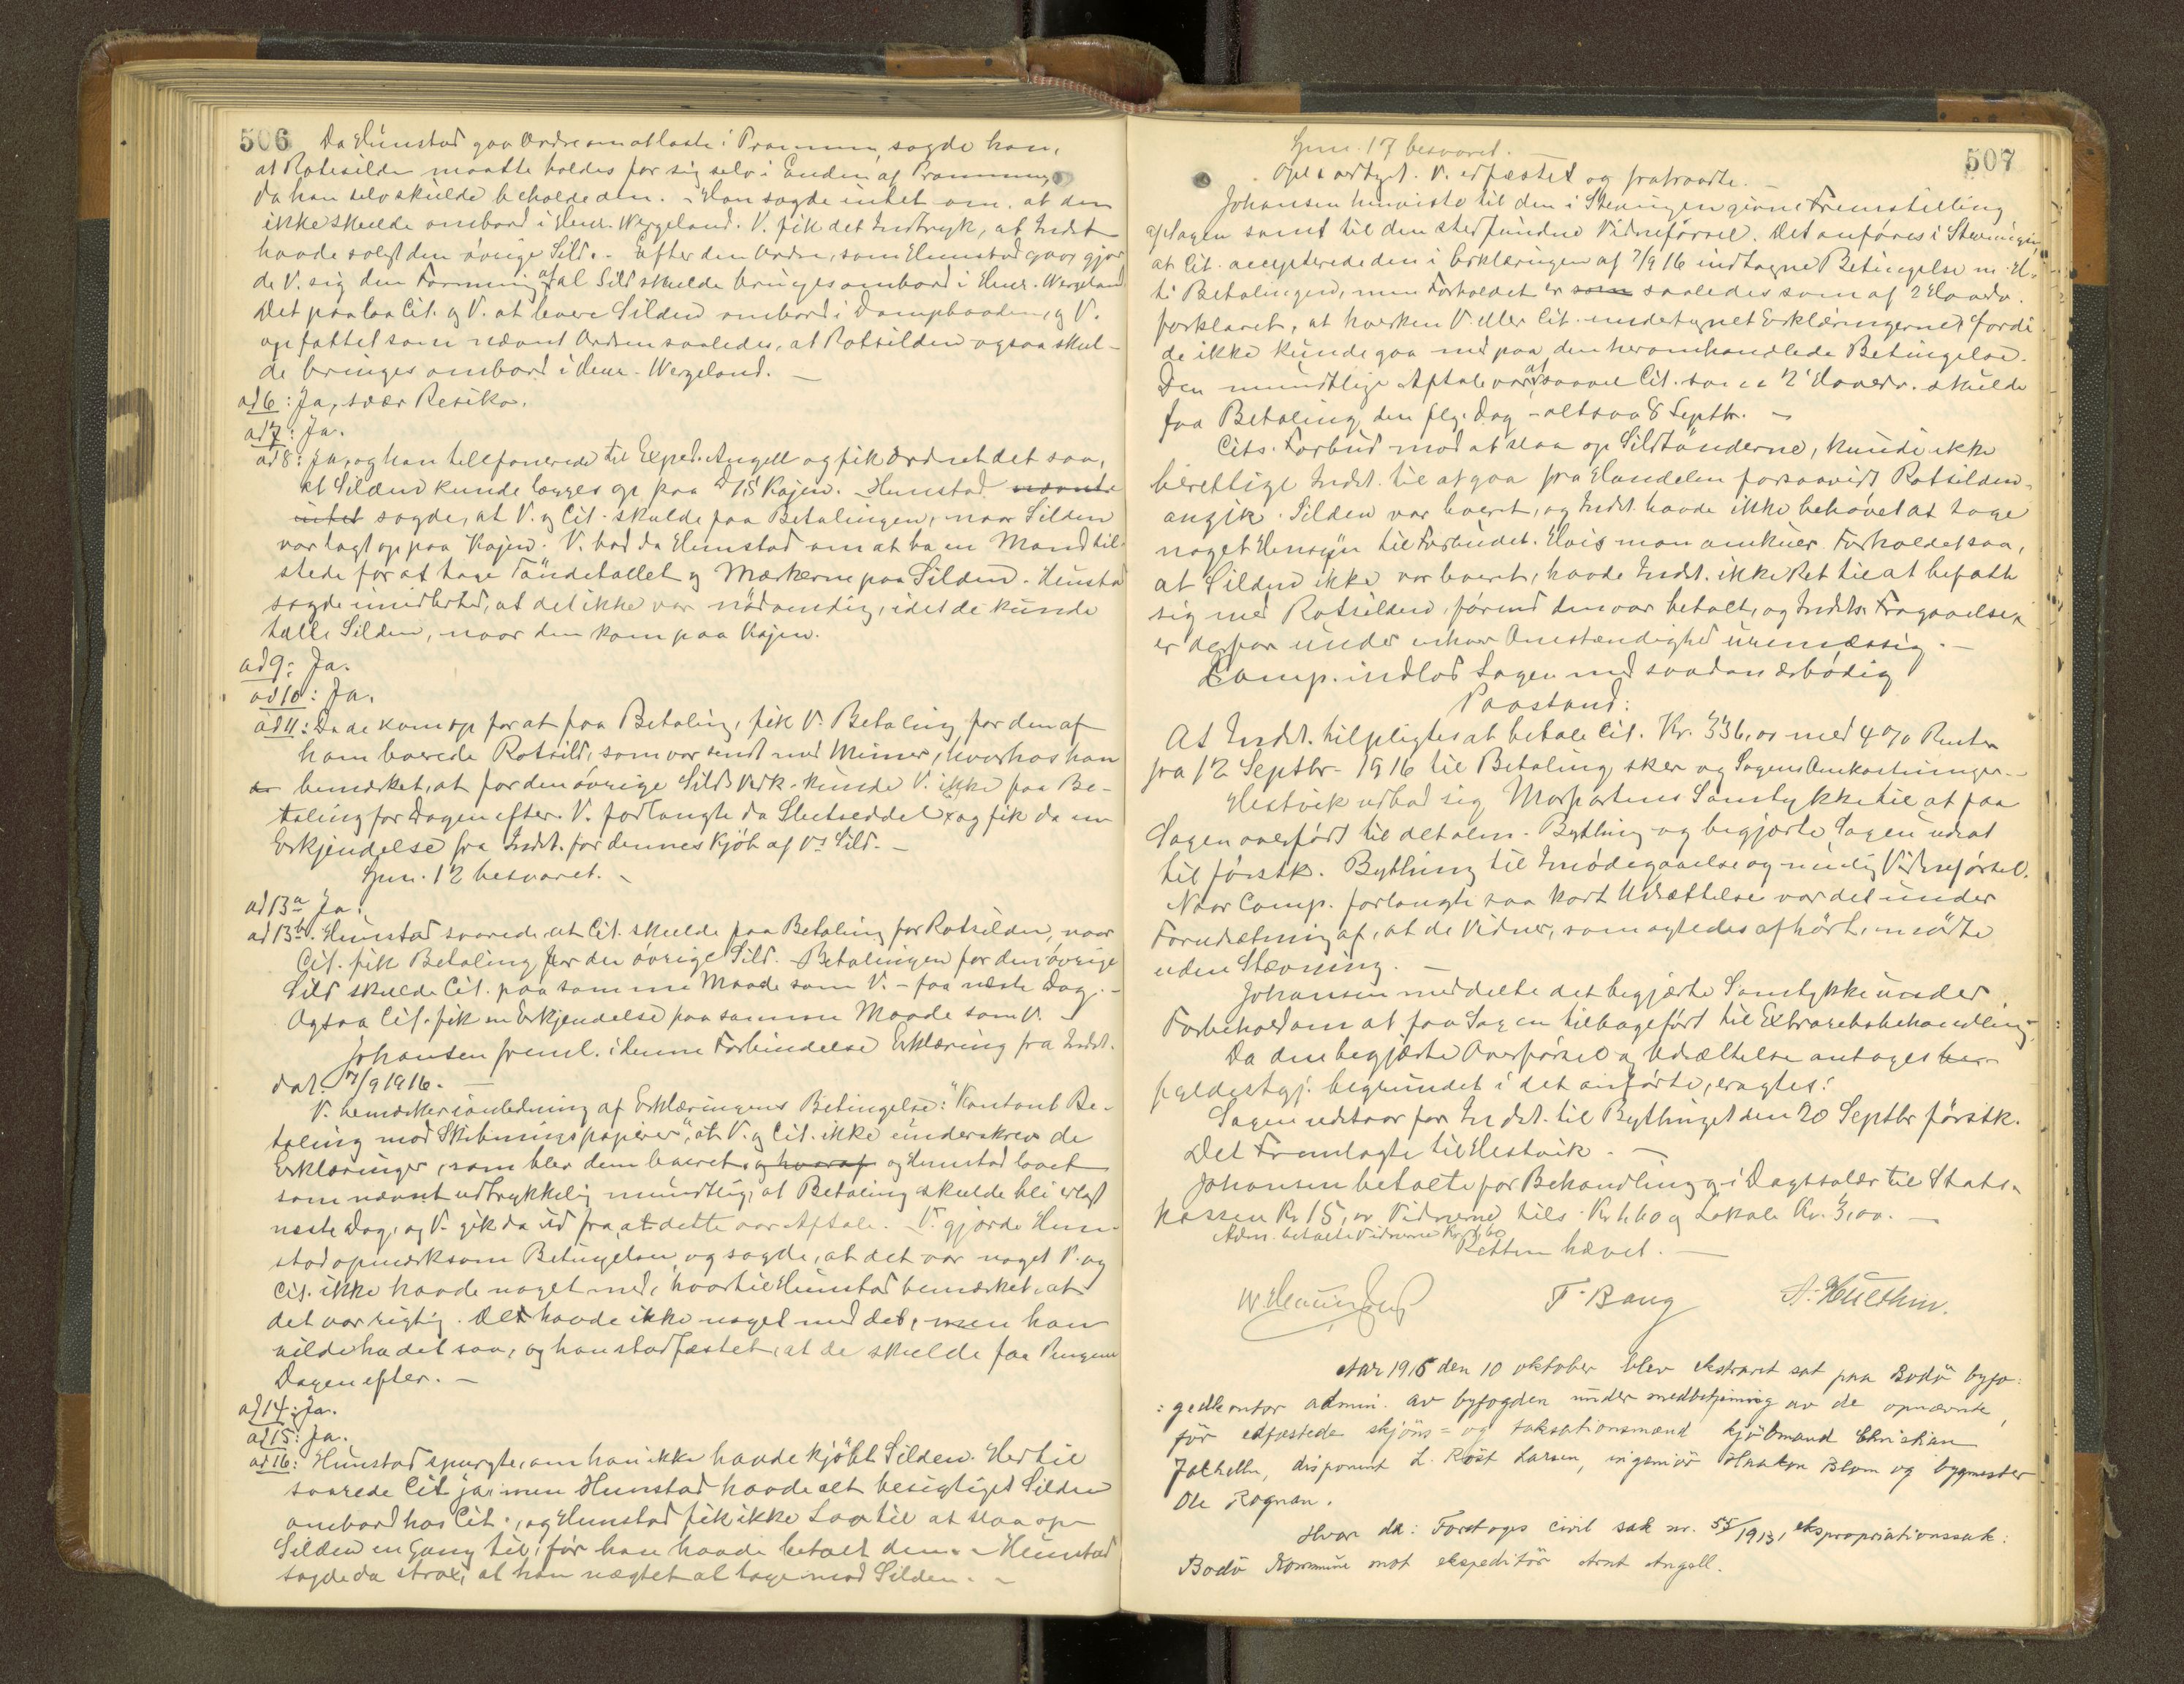 506
Da Hunstad gav Ordre om at laste i Prammen, sagde han,
at Rotsilden maatte holdes for sig selv i Enden af Prammen,
da han selv skulde beholde den. - Han sagde intet om, at den
ikke skulde ombord i Henr. Wergeland. V. fik det Indtryk, at Indst.
havde solgt den øvrige Sild. - Efter den Ordre, som Hunstad gav, gjor
de V. sig den Formening, at al Sild skulde bringes ombord i Henr. Wergeland
Det paalaa Cit. og V. at levere Silden ombord i Dampbaaden, og V.
opfattet som nævnt Ordren saaledes, at Rotsilden ogsaa skul-
de bringes ombord i Henr. Wergeland. -
ad 6: Ja, svær Resiko.
ad 7: Ja.
ad 8: Ja, og han telefonerede til Exped. Angell og fik ordnet det saa,
at Silden kunde lægges op paa D/S Kajen. Hunstad nævnte
intet sagde, at V. og Cit. skulde faa Betalingen, naar Silden
var lagt op paa Kajen. V. bad da Hunstad om at ha en Mand til-
stede for at tage Tøndetallet og Mærkerne paa Silden. Hunstad
sagde imidlertid, at det ikke var nødvendig, idet de kunde
tælle Silden, naar den kom paa Kajen.
ad 9: Ja.
ad 10: Ja.
ad 11: Da de kom op for at faa Betaling, fik V. Betaling for den af
ham leverede Rotsild, som var sendt med Mimer, hvorhos han
bemærket, at for den øvrige Silds Vedk. kunde V. ikke faa Be-
taling før Dagen efter. V. forlangte da Slutseddel og fik da en
Erkjendelse fra Indst. for dennes Kjøb af V's Sild. -
Spm. 12 besvaret. -
ad 13a Ja.
ad 13b. Hunstad svarede, at Cit. skulde faa Betaling for Rotsilden, naar
Cit. fik Betaling for den øvrige Sild. - Betalingen for den øvrige
Sild skulde Cit. paa samme Maade som V. - faa næste Dag. -
Ogsaa Cit. fik en Erkjendelse paa samme Maade som V. -
Johansen freml. i denne Forbindelse Erklæring fra Indst.
dat. 7/9 1916. -
V. bemærker i anledning af Erklæringens Betingelse: "Kontant Be-
taling mod Skibningspapirer", at V. og Cit. ikke underskrev de
Erklæringer, som blev dem leveret, og hvoraf og Hunstad lovet
som nævnt udtrykkelig mundtlig, at Betaling skulde bli erlagt
næste Dag, og V. gik da ud fra, at dette var Aftale. V. gjorde Hun-
stad opmærksom Betingelsen og sagde, at det var noget V. og
Cit. ikke havde noget med, hvortil Hunstad bemærket, at
det var rigtig. De havde ikke noget med det, men han
vilde ha det saa, og han stadfæstet, at de skulde faa Pengene
Dagen efter. -
ad 14: Ja.
ad 15: Ja.
ad 16: Hunstad spurgte, om han ikke havde kjøbt Silden. Hertil
svarede Cit. ja, men Hunstad havde alt besigtiget Silden
ombord hos Cit., og Hunstad fik ikke Lov til at slaa op
Silden en Gang til, før han havde betalt den. - Hunstad
sagde da strax, at han nægtet at tage mod Silden. -
507
Spm. 17 besvaret. -
Opl. vedtaget. V. edfæstet og fratraadte. -
Johansen henviste til den i Stevningen givne Fremstilling
af Sagen samt til den stedfundne Vidneførsel. Det anføres i Stevningen,
at Cit. accepterede den i Erklæringen af 7/9 16 indtagne Betingelse m. H.
ti Betalingen, men Forholdet er som saaledes som af 2 Hovedv.
forklaret, at hverken V. eller Cit. undertegnet Erklæringerne, fordi
de ikke kunde gaa med paa den heromhandlede Betingelse.
Den mundtlige Aftale var, at saavel Cit. som 2 Hovedv. skulde
faa Betaling den flg. Dag - altsaa 8 Septbr. -
Cits. Forbud mod at slaa op Sildtønderne, kunde ikke
berettige Indst. til at gaa fra Handelen forsaavidt Rotsilden
angik. Silden var levert, og Indst. havde ikke behøvet at tage
noget Hensyn til Forbudet. Hvis man anskuer Forholdet saa,
at Silden ikke var levert, havde Indst. ikke Ret til at befatte
sig med Rotsilden, førend den var betalt, og Indsts. Fragaaelse
er derfor under enhver Omstændighed uremæssig. -
Comp. indlod Sagen med saadan ærbødig
Paastand:
At Indst. tilpligtes at betale Cit. Kr. 336,00 med 4 % Renter
fra 12 Septbr. 1916 til Betaling sker og Sagens Omkostninger. -
Hestvik udbad sig Modpartens Samtykke til at faa
Sagen overført til det alm. Bything og begjærte Sagen udsat
til førstk. Bything til Imødegaaelse og mulig Vidneførsel.
Naar Comp. forlangte saa kort Udsættelse var det under
Forudsætning af, at de Vidner, som agtedes afhørt, mødte
uden Stævning. -
Johansen meddelte det begjærte Samtykke under
Forbehold om at faa Sagen tilbageført til Extraretsbehandling.
Da den begjærte Overførsel og Udsættelse antages her
fyldestgj. begrundet i det anførte, eragtes:
Sagen udstaar for Indst. til Bythinget den 20 Septbr førstk.
Det Fremlagte til Hestvik. -
Johansen betalte for Behandling i Dagssalær til Stats-
kassen Kr 15,00 Vidnerne tils. Kr 1.60 og Lokale Kr. 3,00. -
Adm. betalte Vidnerne Kr 1,60
Retten hævet. -
F. Bang
A. Hulthin.
Aar 1916 den 10 oktober blev ekstraret sat paa Bodø byfo:
:gedkontor admin. av byfogden under medbetjening av de opnævnte,
før edfæstede skjøns= og taksationsmænd kjøbmand Christian
Jakhelln, disponent L. Røst Larsen, ingeniør Haakon Blom og bygmester
Ole Rognan.
Hvor da: Foretoges civil sak nr. 55/1913, ekspropriationssak:
Bodø Kommune mot ekspeditør Arnt Angell.